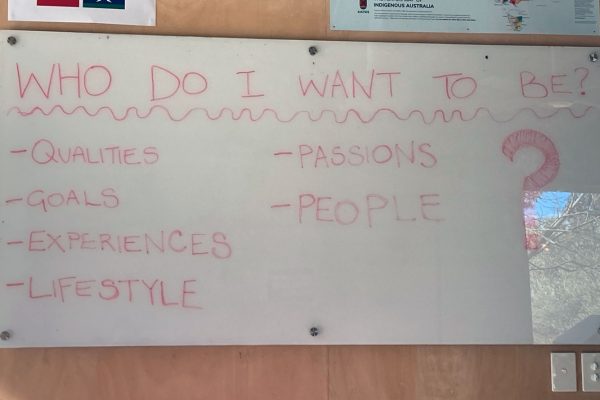 INDIGENOUS AUSTRALIA
WHO DO I WANT TO BE?
-QUALITIES
-GOALS
-EXPERIENCES
-LIFESTYLE
-PASSIONS
-PEOPLE
?